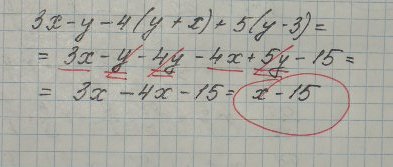 3x-y-4(y+x)+5(y-3)=
= 3x-y-4y-4x+5y-15=
= 3x-4x-15= x-15